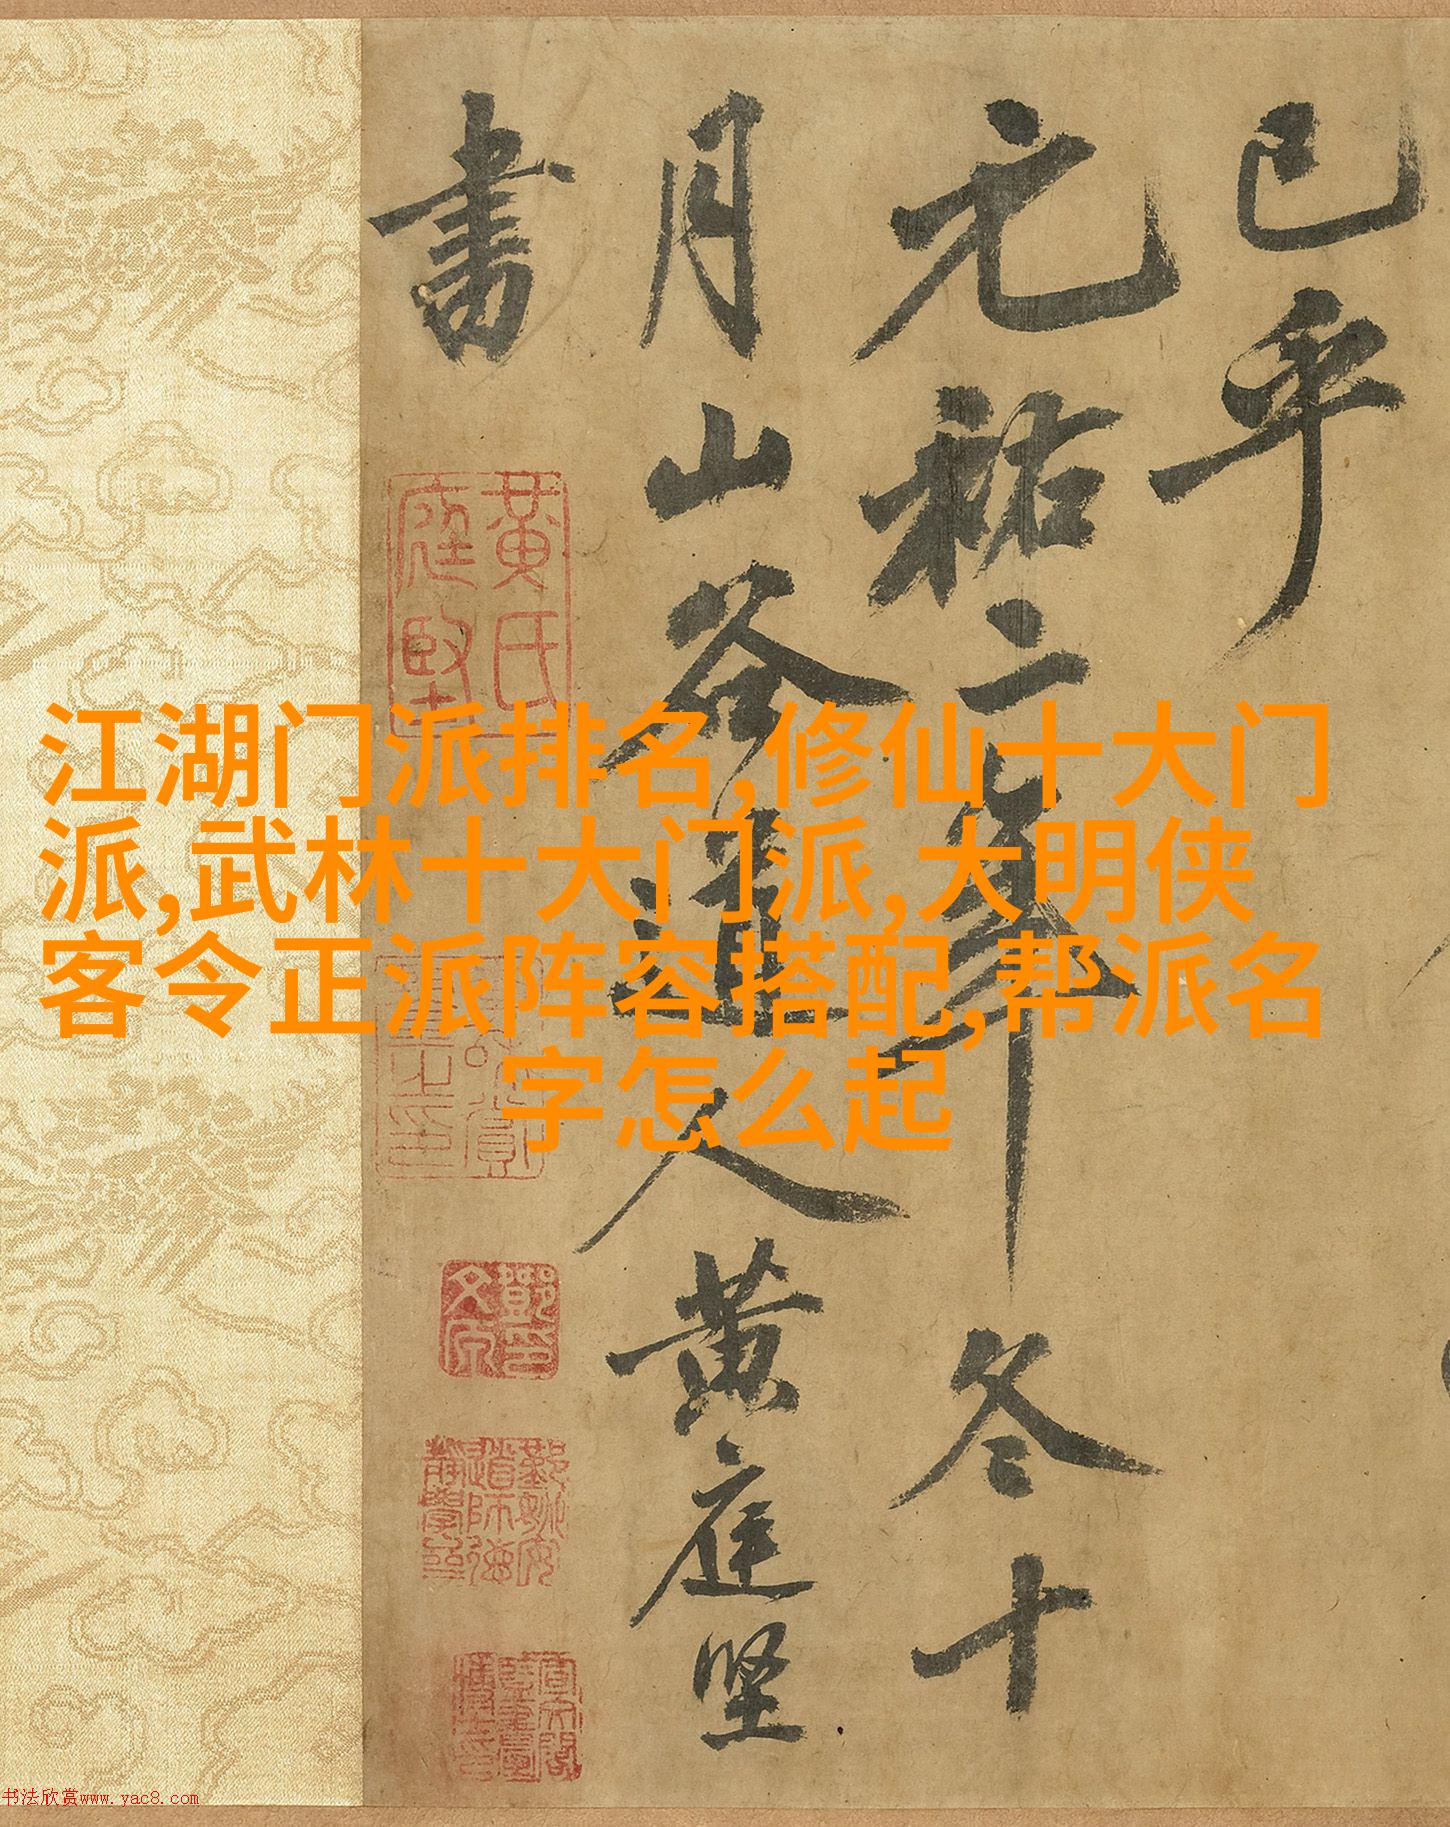 已乎
元祐二年冬十
月山谷道人黄庭坚
書
黄氏
庭堅
江湖门派排名,修仙十大门
派,武林十大门派,大明侠
客令正派阵容搭配,帮派名
字怎么起
书法欣赏www.yac8.com